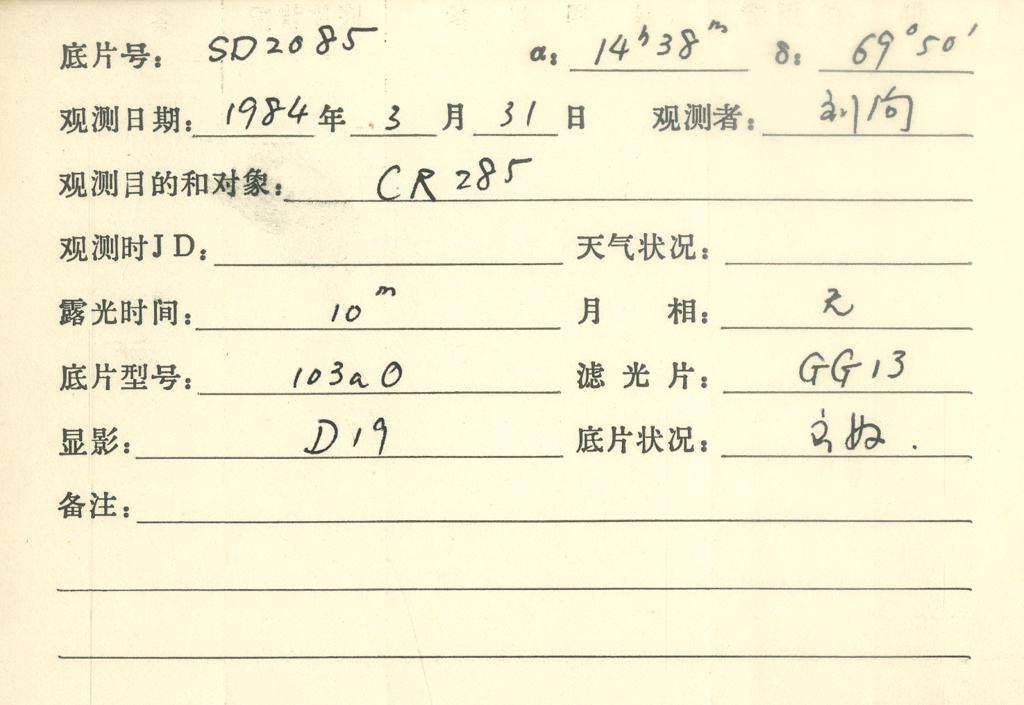 底片号: SD2085 α: 14ʰ38ᵐ δ: 69°50′
观测日期: 1984年 3月 31日 观测者: 刘向
观测目的和对象: CR285
观测时JD: 天气状况:
露光时间: 10ᵐ 月相: 无
底片型号: 103aO 滤光片: GG13
显影: D19 底片状况:
备注: